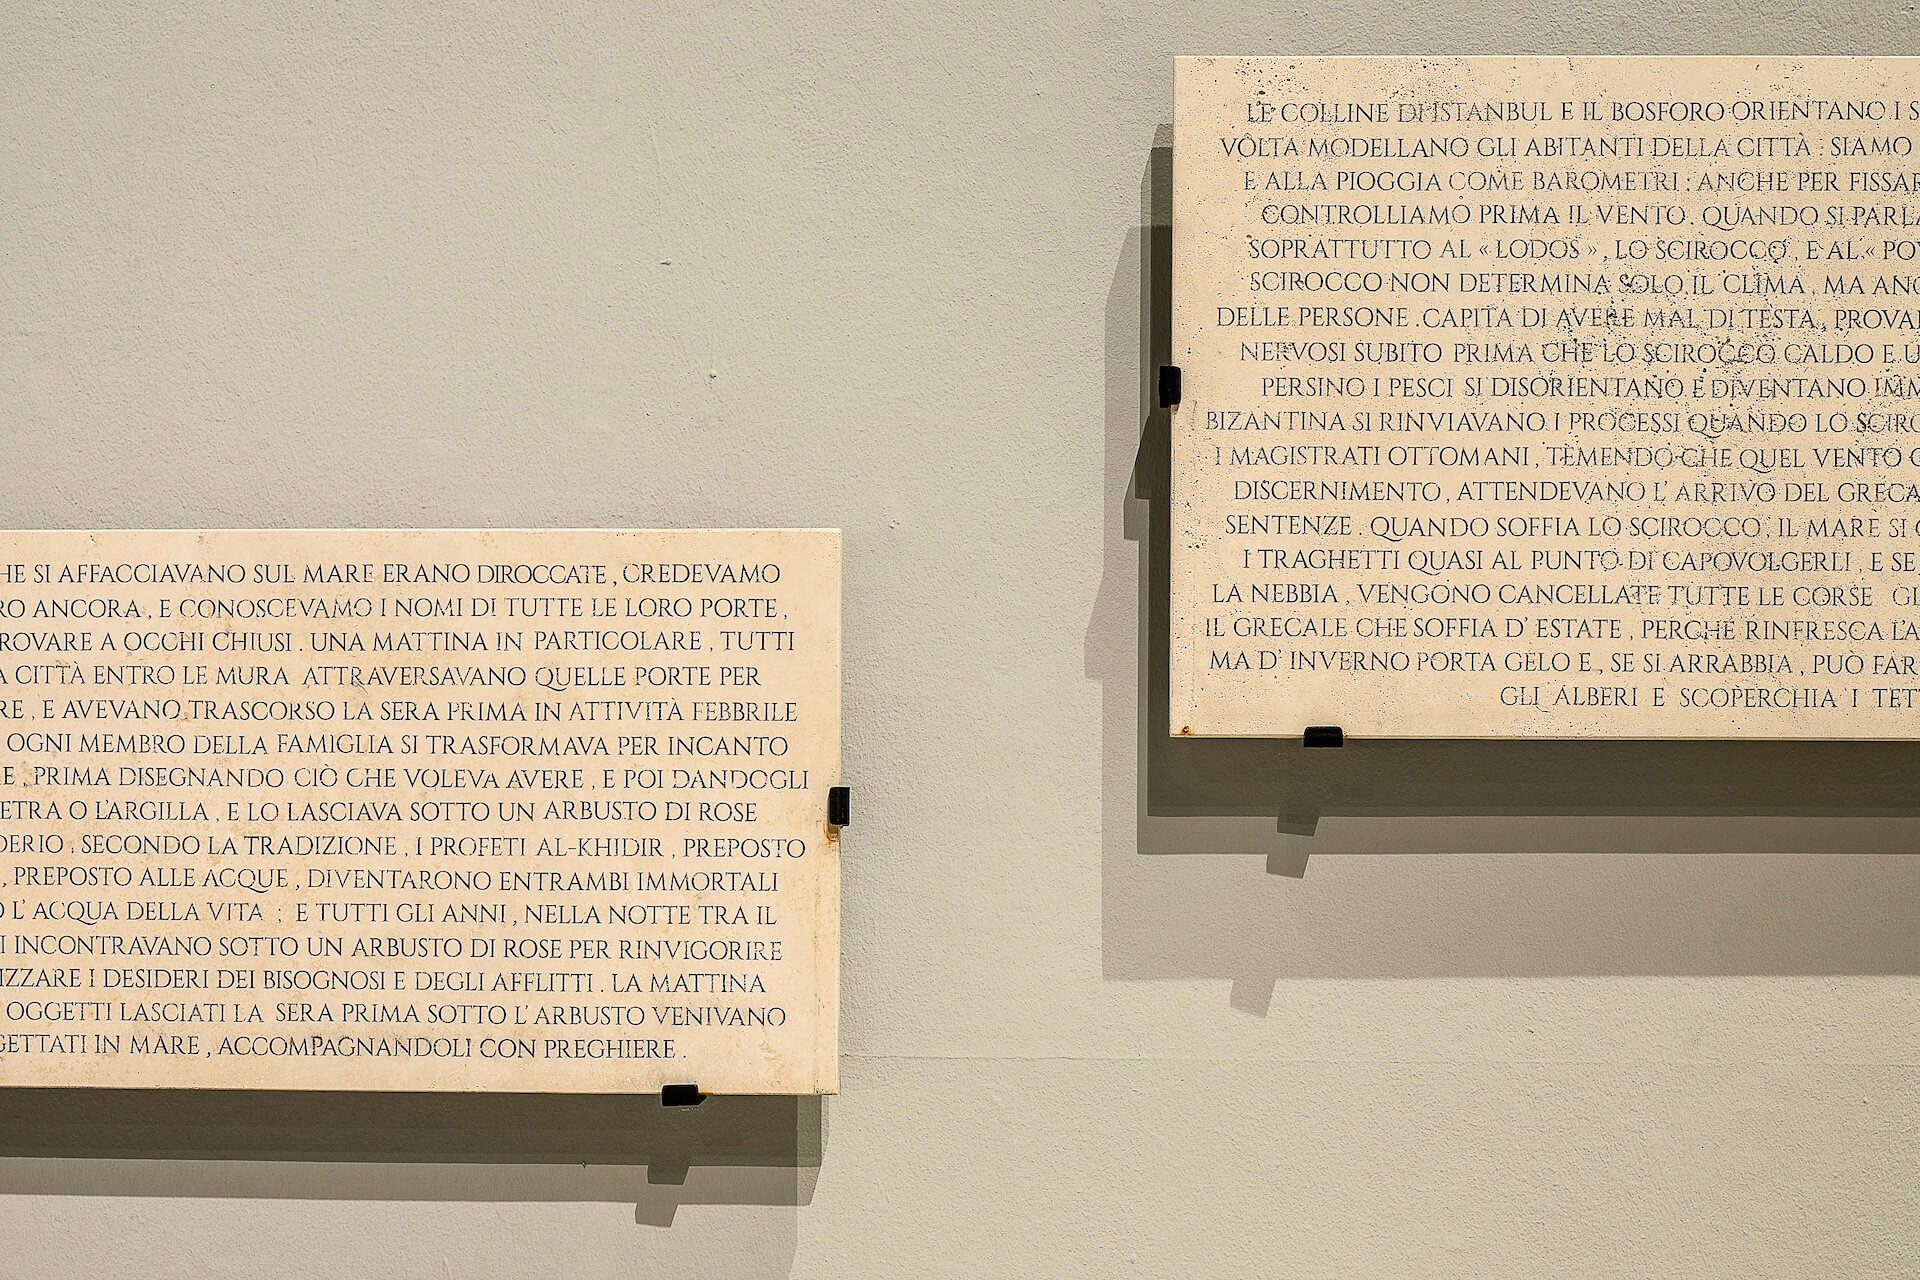 HE SI AFFACCIAVANO SUL MARE ERANO DIROCCATE, CREDEVAMO
RO ANCORA, E CONOSCEVAMO I NOMI DI TUTTE LE LORO PORTE,
ROVARE A OCCHI CHIUSI. UNA MATTINA IN PARTICOLARE, TUTTI
A CITTÀ ENTRO LE MURA ATTRAVERSAVANO QUELLE PORTE PER
RE, E AVEVANO TRASCORSO LA SERA PRIMA IN ATTIVITÀ FEBBRILE
OGNI MEMBRO DELLA FAMIGLIA SI TRASFORMAVA PER INCANTO
E, PRIMA DISEGNANDO CIÒ CHE VOLEVA AVERE, E POI DANDOGLI
ETRA O L'ARGILLA, E LO LASCIAVA SOTTO UN ARBUSTO DI ROSE
DERIO. SECONDO LA TRADIZIONE, I PROFETI AL-KHIDIR, PREPOSTO
, PREPOSTO ALLE ACQUE, DIVENTARONO ENTRAMBI IMMORTALI
O L'ACQUA DELLA VITA; E TUTTI GLI ANNI, NELLA NOTTE TRA IL
I INCONTRAVANO SOTTO UN ARBUSTO DI ROSE PER RINVIGORIRE
IZZARE I DESIDERI DEI BISOGNOSI E DEGLI AFFLITTI. LA MATTINA
OGGETTI LASCIATI LA SERA PRIMA SOTTO L'ARBUSTO VENIVANO
GETTATI IN MARE, ACCOMPAGNANDOLI CON PREGHIERE.
LE COLLINE DI ISTANBUL E IL BOSFORO ORIENTANO I S
VOLTA MODELLANO GLI ABITANTI DELLA CITTÀ: SIAMO
E ALLA PIOGGIA COME BAROMETRI; ANCHE PER FISSAR
CONTROLLIAMO PRIMA IL VENTO. QUANDO SI PARLA
SOPRATTUTTO AL «LODOS», LO SCIROCCO, E AL «PO
SCIROCCO NON DETERMINA SOLO IL CLIMA, MA ANC
DELLE PERSONE. CAPITA DI AVERE MAL DI TESTA, PROVA
NERVOSI SUBITO PRIMA CHE LO SCIROCCO CALDO E U
PERSINO I PESCI SI DISORIENTANO E DIVENTANO IMM
BIZANTINA SI RINVIAVANO I PROCESSI QUANDO LO SCIRO
I MAGISTRATI OTTOMANI, TEMENDO CHE QUEL VENTO
DISCERNIMENTO, ATTENDEVANO L'ARRIVO DEL GRECA
SENTENZE. QUANDO SOFFIA LO SCIROCCO, IL MARE SI
I TRAGHETTI QUASI AL PUNTO DI CAPOVOLGERLI, E SE
LA NEBBIA, VENGONO CANCELLATE TUTTE LE CORSE GI
IL GRECALE CHE SOFFIA D'ESTATE, PERCHÉ RINFRESCA L'A
MA D'INVERNO PORTA GELO E, SE SI ARRABBIA, PUÒ FAR
GLI ALBERI E SCOPERCHIA I TET